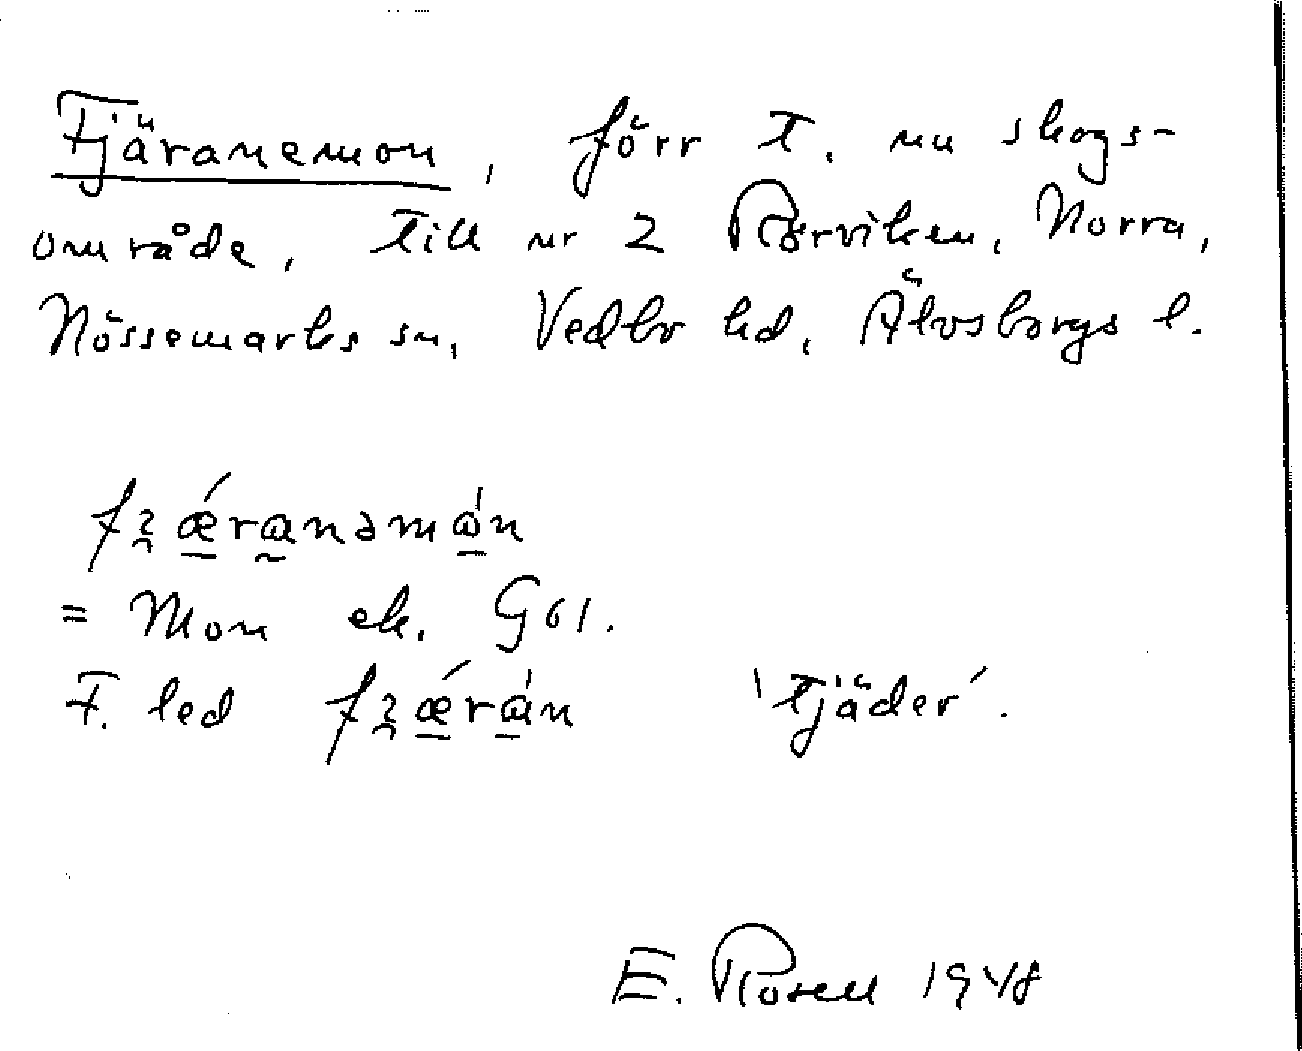 Fjäranemon, förr t. nu skogs-
område, till nr 2 Rörviken, Norra,
Nössemarks sn, Vedbo hd, Älvsborgs l.
fʒǽranəmán
= Mon ek. G61.
F. led fʒǽrán 'tjäder'.
E. Rosell 1948